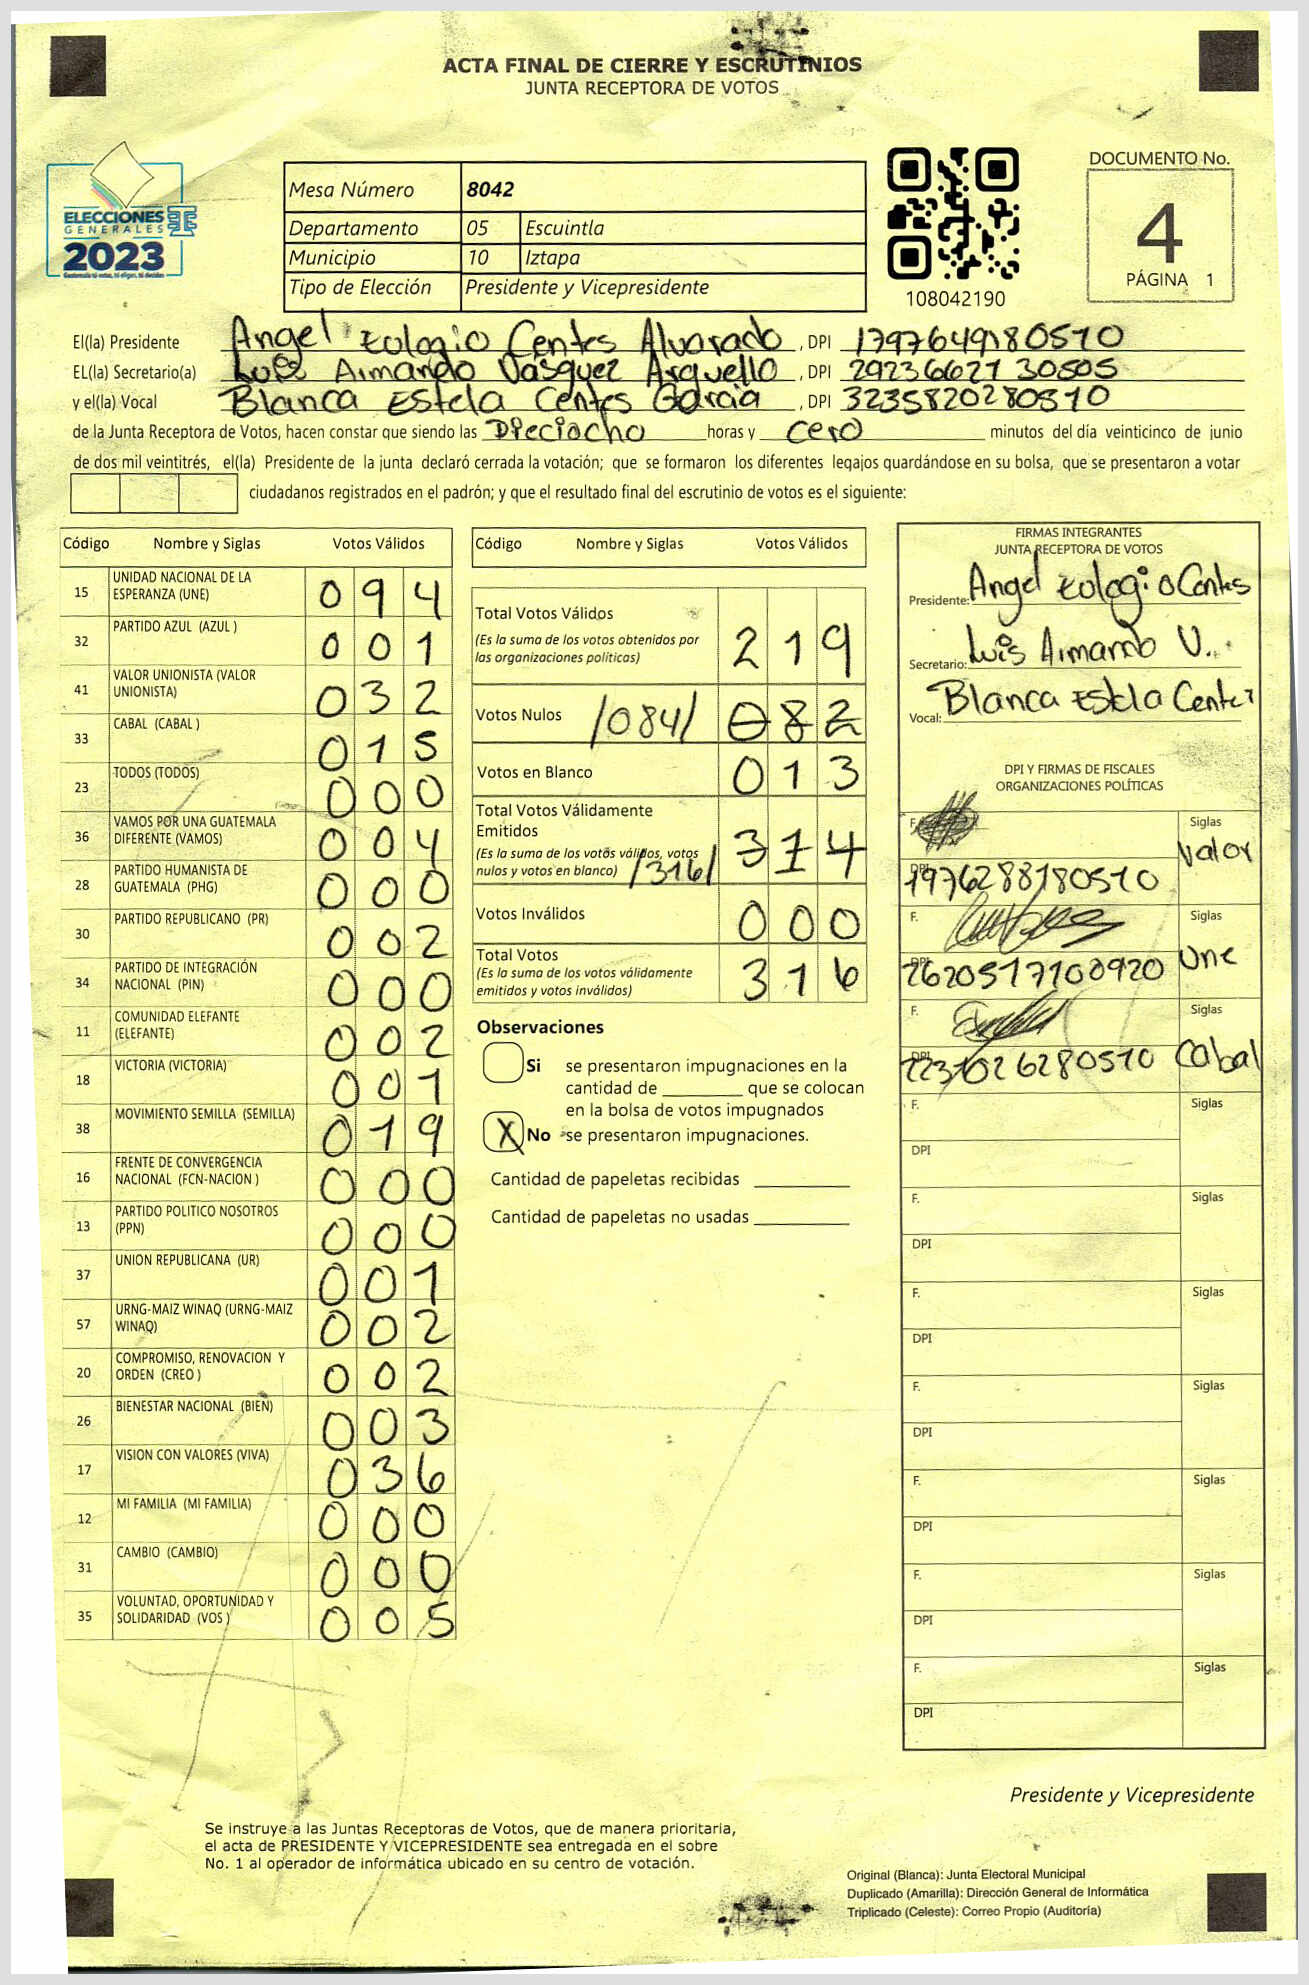 ACTA FINAL DE CIERRE Y ESCRUTINIOS
JUNTA RECEPTORA DE VOTOS
ELECCIONES
GENERALES
2023
Mesa Número 8042
Departamento 05 Escuintla
Municipio 10 Iztapa
Tipo de Elección Presidente y Vicepresidente
108042190
DOCUMENTO No.
4
PÁGINA 1
El(la) Presidente Angel Eulogio Centes Alvarado, DPI 1797649180510
EL(la) Secretario(a) Luis Armando Vasquez Arguello, DPI 2923662730505
y el(la) Vocal Blanca Estela Centes Garcia, DPI 3235820280510
de la Junta Receptora de Votos, hacen constar que siendo las Dieciocho horas y cero minutos del día veinticinco de junio
de dos mil veintitrés, el(la) Presidente de la junta declaró cerrada la votación; que se formaron los diferentes legajos guardándose en su bolsa, que se presentaron a votar
ciudadanos registrados en el padrón; y que el resultado final del escrutinio de votos es el siguiente:
Código Nombre y Siglas Votos Válidos
15 UNIDAD NACIONAL DE LA ESPERANZA (UNE) 094
32 PARTIDO AZUL (AZUL ) 001
41 VALOR UNIONISTA (VALOR UNIONISTA) 032
33 CABAL (CABAL ) 015
23 TODOS (TODOS) 000
36 VAMOS POR UNA GUATEMALA DIFERENTE (VAMOS) 004
28 PARTIDO HUMANISTA DE GUATEMALA (PHG) 000
30 PARTIDO REPUBLICANO (PR) 002
34 PARTIDO DE INTEGRACIÓN NACIONAL (PIN) 000
11 COMUNIDAD ELEFANTE (ELEFANTE) 002
18 VICTORIA (VICTORIA) 001
38 MOVIMIENTO SEMILLA (SEMILLA) 019
16 FRENTE DE CONVERGENCIA NACIONAL (FCN-NACION ) 000
13 PARTIDO POLITICO NOSOTROS (PPN) 000
37 UNION REPUBLICANA (UR) 001
57 URNG-MAIZ WINAQ (URNG-MAIZ WINAQ) 002
20 COMPROMISO, RENOVACION Y ORDEN (CREO ) 002
26 BIENESTAR NACIONAL (BIEN) 003
17 VISION CON VALORES (VIVA) 036
12 MI FAMILIA (MI FAMILIA) 000
31 CAMBIO (CAMBIO) 000
35 VOLUNTAD, OPORTUNIDAD Y SOLIDARIDAD (VOS ) 005
Código Nombre y Siglas Votos Válidos
Total Votos Válidos 219
(Es la suma de los votos obtenidos por
las organizaciones políticas)
Votos Nulos /084/ 082
Votos en Blanco 013
Total Votos Válidamente
Emitidos
(Es la suma de los votos válidos, votos
nulos y votos en blanco) /316/ 314
Votos Inválidos 000
Total Votos 316
(Es la suma de los votos válidamente
emitidos y votos inválidos)
Observaciones
Si se presentaron impugnaciones en la
cantidad de que se colocan
en la bolsa de votos impugnados
X No se presentaron impugnaciones.
Cantidad de papeletas recibidas
Cantidad de papeletas no usadas
FIRMAS INTEGRANTES
JUNTA RECEPTORA DE VOTOS
Presidente: Angel Eulogio Centes
Secretario: Luis Armando V.
Vocal: Blanca Estela Centes
DPI Y FIRMAS DE FISCALES
ORGANIZACIONES POLÍTICAS
F. Siglas Valor
DPI 1976288180510
F. Siglas Une
DPI 2620517100920
F. Siglas Cabal
DPI 2231026280510
F. Siglas
DPI
F. Siglas
DPI
F. Siglas
DPI
F. Siglas
DPI
F. Siglas
DPI
F. Siglas
DPI
F. Siglas
DPI
Presidente y Vicepresidente
Se instruye a las Juntas Receptoras de Votos, que de manera prioritaria,
el acta de PRESIDENTE Y VICEPRESIDENTE sea entregada en el sobre
No. 1 al operador de informática ubicado en su centro de votación.
Original (Blanca): Junta Electoral Municipal
Duplicado (Amarilla): Dirección General de Informática
Triplicado (Celeste): Correo Propio (Auditoría)